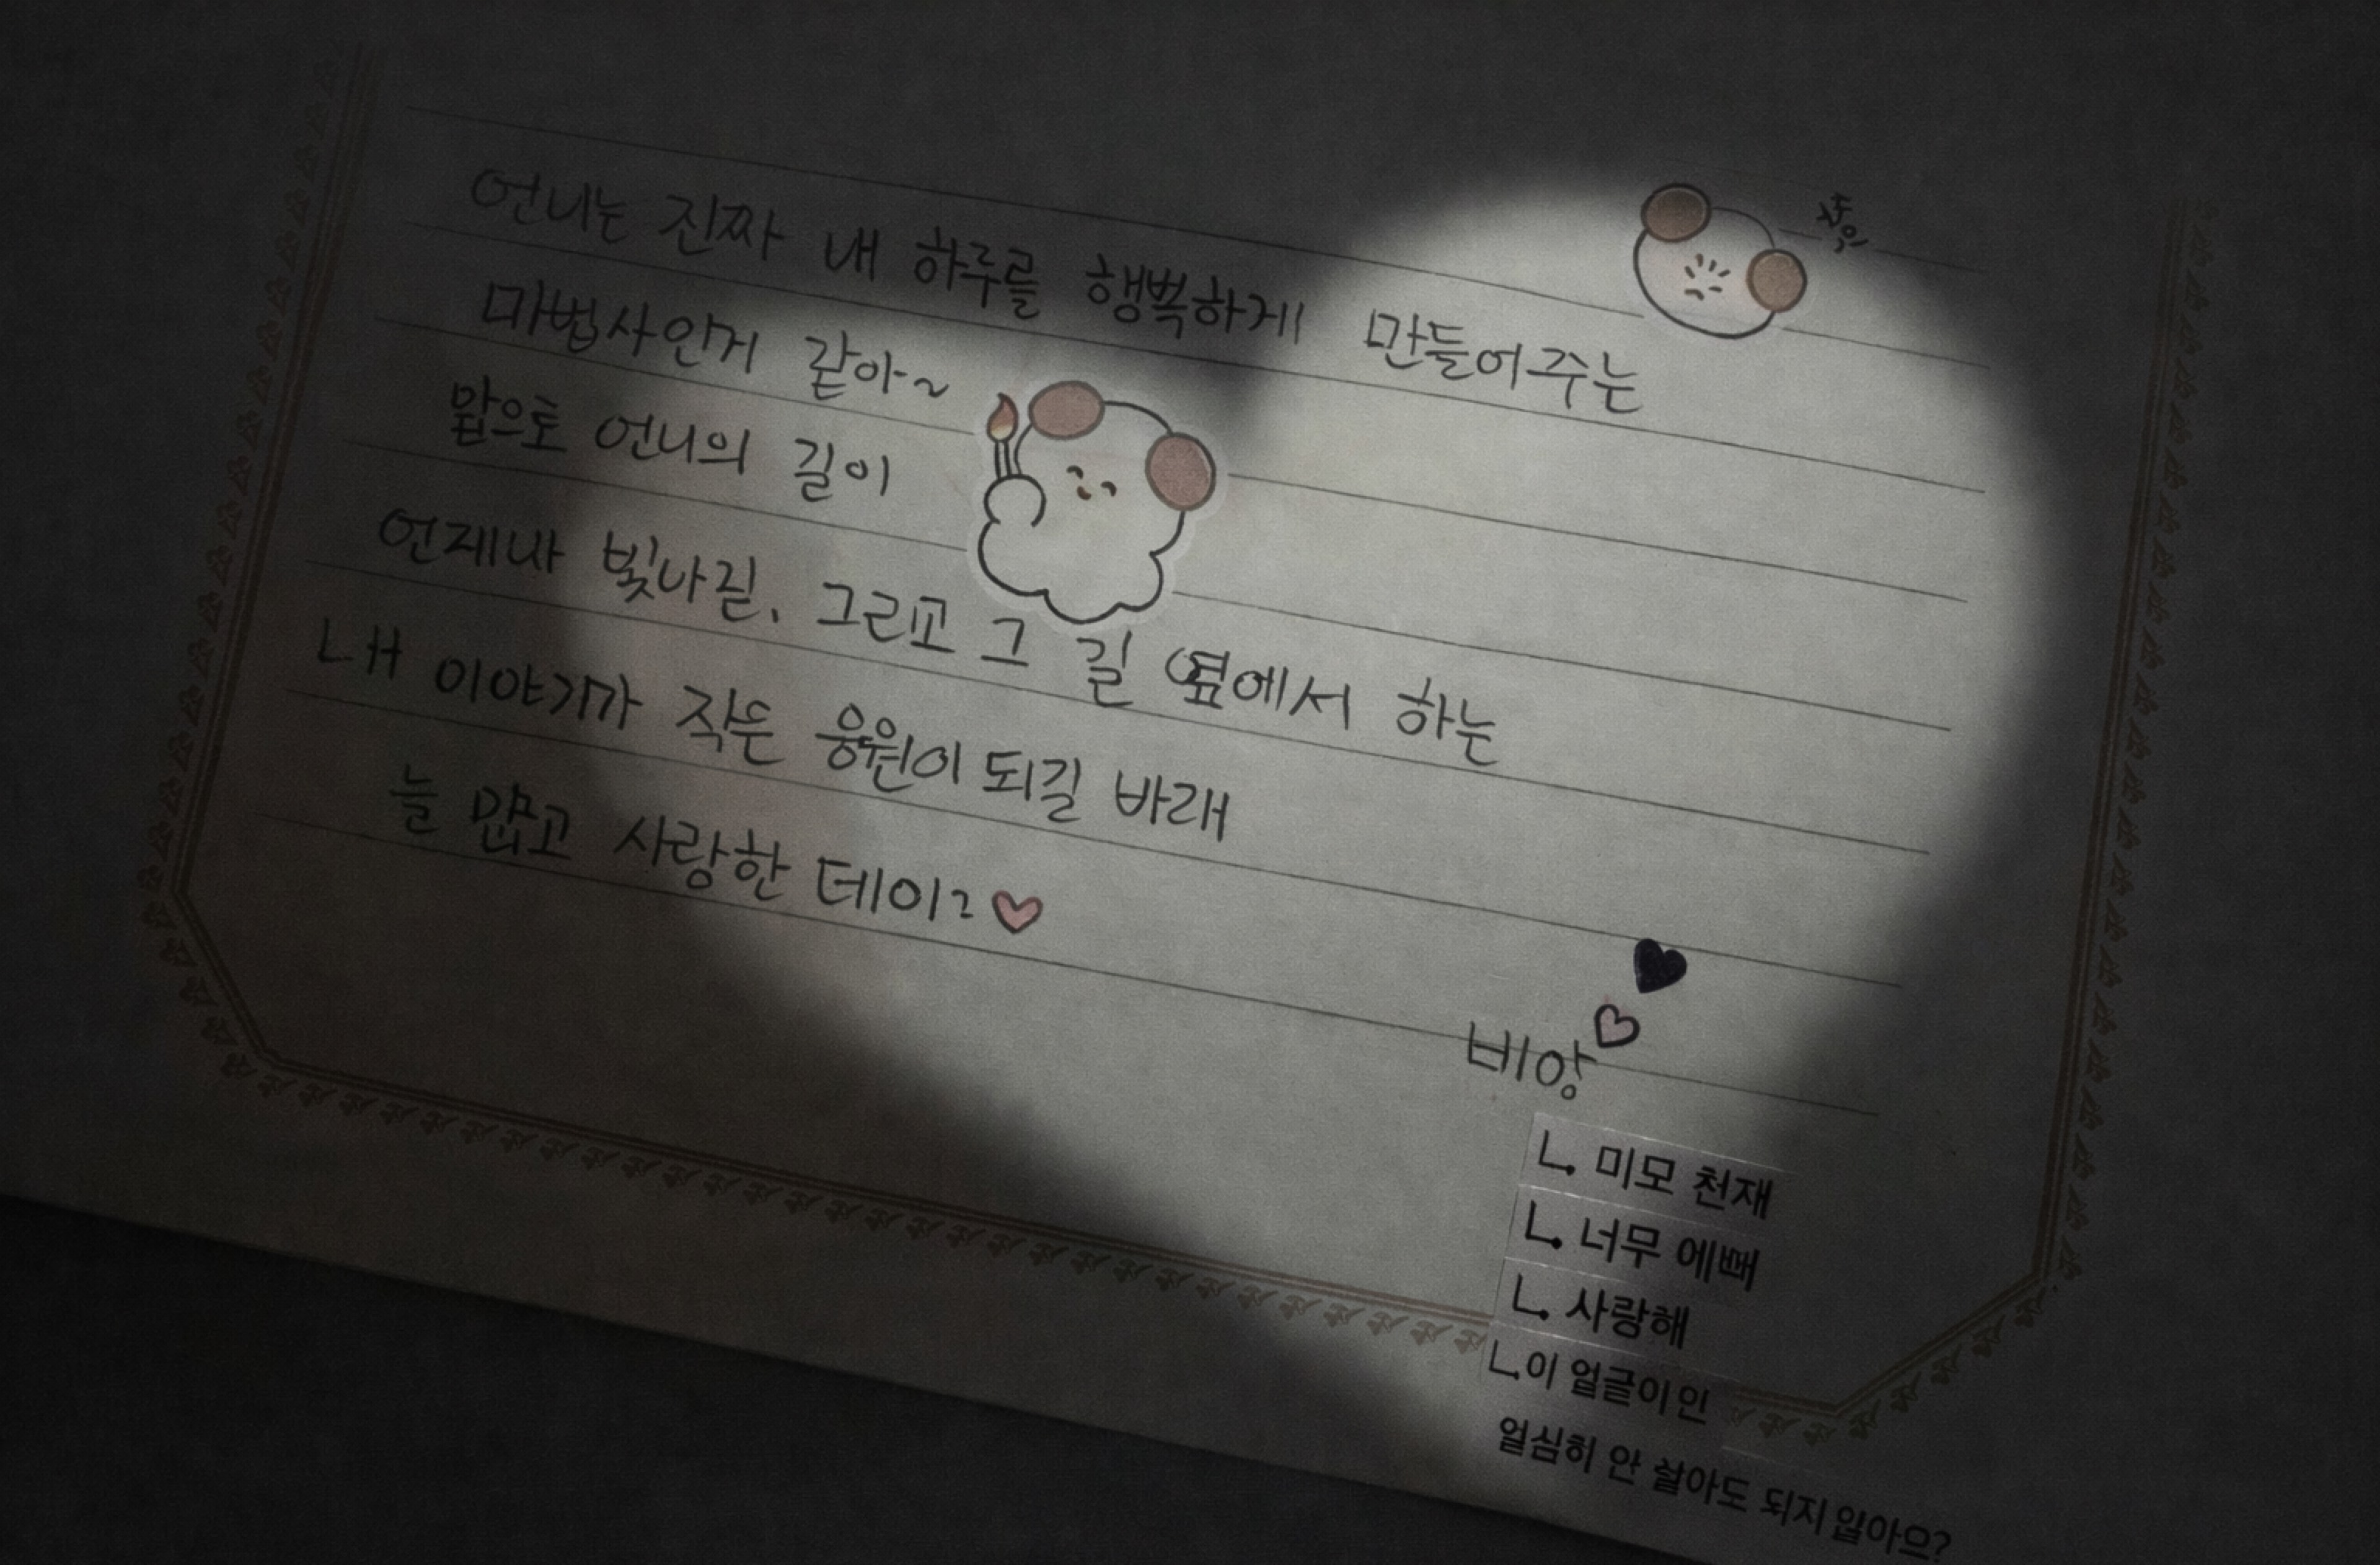 언니는 진짜 내 하루를 행복하게 만들어주는
마법사인거 같아~
앞으로 언니의 길이
언제나 빛나길, 그리고 그 길 옆에서 하는
내 이야기가 작은 응원이 되길 바래
늘 맙고 사랑한 테이 ♡
비앙 ♡
ㄴ 미모 천재
ㄴ 너무 에빼
ㄴ 사랑해
ㄴ이 얼글이인
얼심히 안 살아도 되지 않아으?